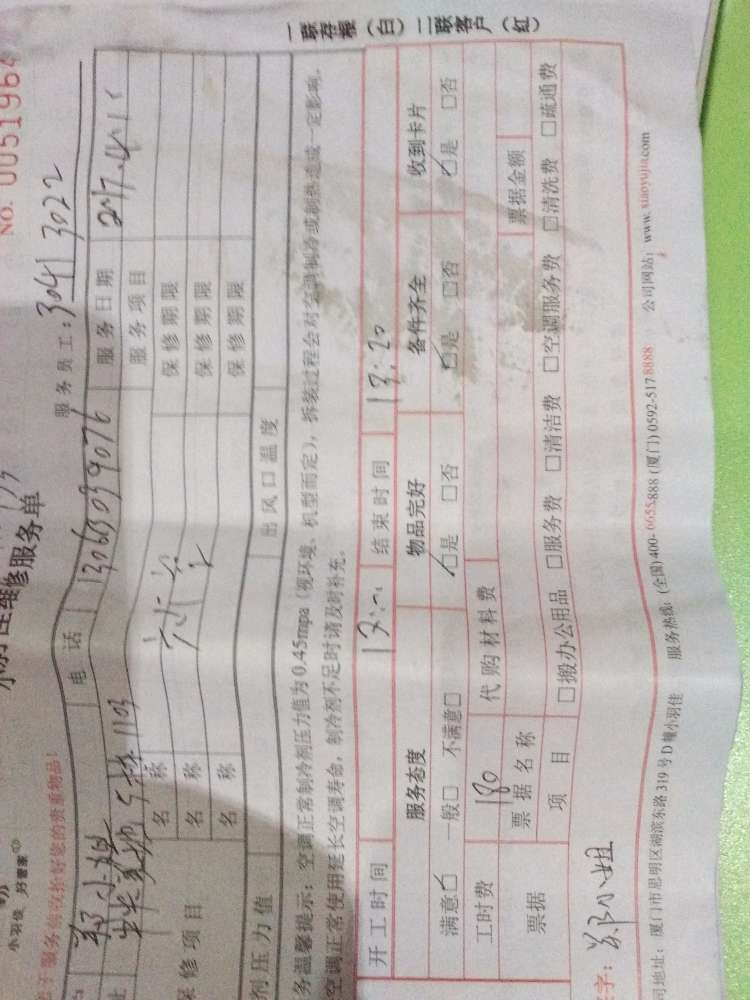 小羽佳 好管家
NO. 0051964
维修服务单
于服务前议拾好您的贵重物品!
服务员工:3041 3022
郑小姐 电 话 13063039076 服务日期
5栋 1103 服务项目
名 称 保修期限
保修项目 名 称 保修期限
名 称 保修期限
剂压力值 出风口温度
务温馨提示:空调正常制冷剂压力值为0.45mpa(视环境、机型而定),拆装过程会对空调制冷或制热造成一定影响。
空调正常使用延长空调寿命,制冷剂不足时请及时补充。
开工时间 结束时间
服务态度 物品完好 备件齐全 收到卡片
满意☑ 一般□ 不满意□ ☑是 □否 ☑是 □否 ☑是 □否
工时费 180 代购材料费
票据 票据名称 票据金额
项 目 □搬办公用品 □服务费 □清洁费 □空调服务费 □清洗费 □疏通费
字:郑小姐
司地址:厦门市思明区湖滨东路319号D幢小羽佳 服务热线:(全国)400-6655-888 (厦门)0592-5178888 公司网站:www.xiaoyujia.com
一联存根(白)二联客户(红)